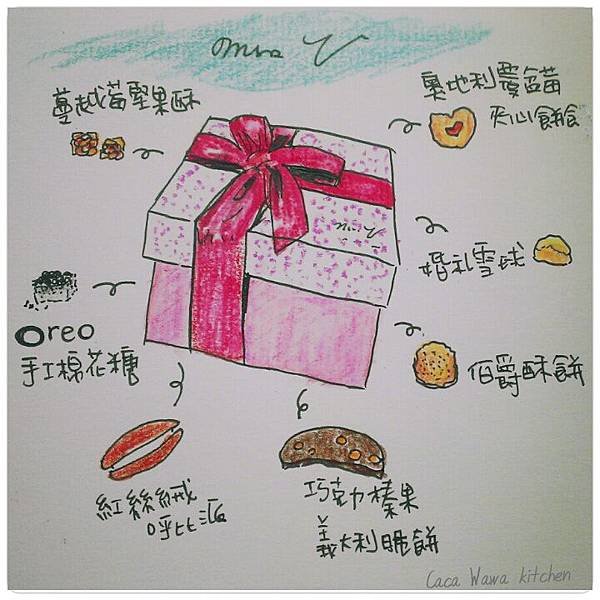 Miss V
蔓越莓堅果酥
奧地利覆盆莓
夾心餅
婚礼雪球
Oreo
手工棉花糖
伯爵酥餅
紅絲絨
呼比派
巧克力榛果
義大利脆餅
Caca Wawa kitchen